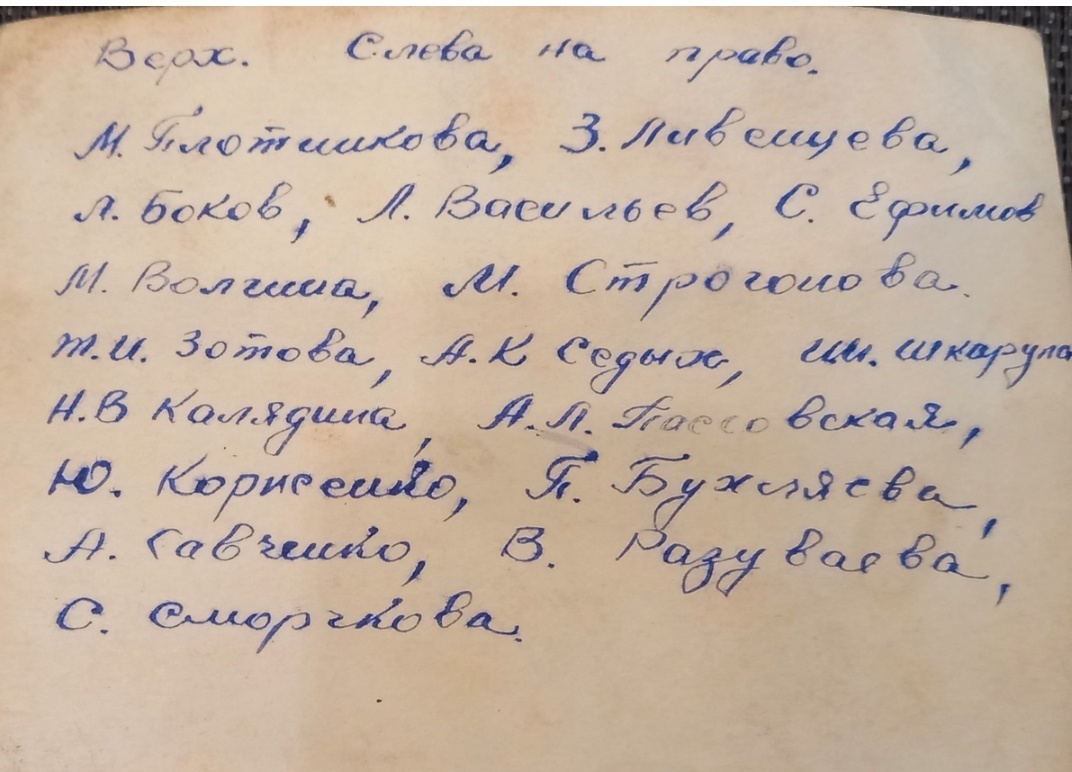 Верх. Слева на право.
М. Плотникова, З. Ливенцева,
Л. Боков, Л. Васильев, С. Ефимов
М. Волгина, М. Строгонова.
Т.И. Зотова, А.К Седых, Шкарупа
Н.В Калядина, А.Л. Пассовская,
Ю. Корнеенко, П. Бухляева,
А. Савченко, В. Разуваева,
С. Сморчкова.